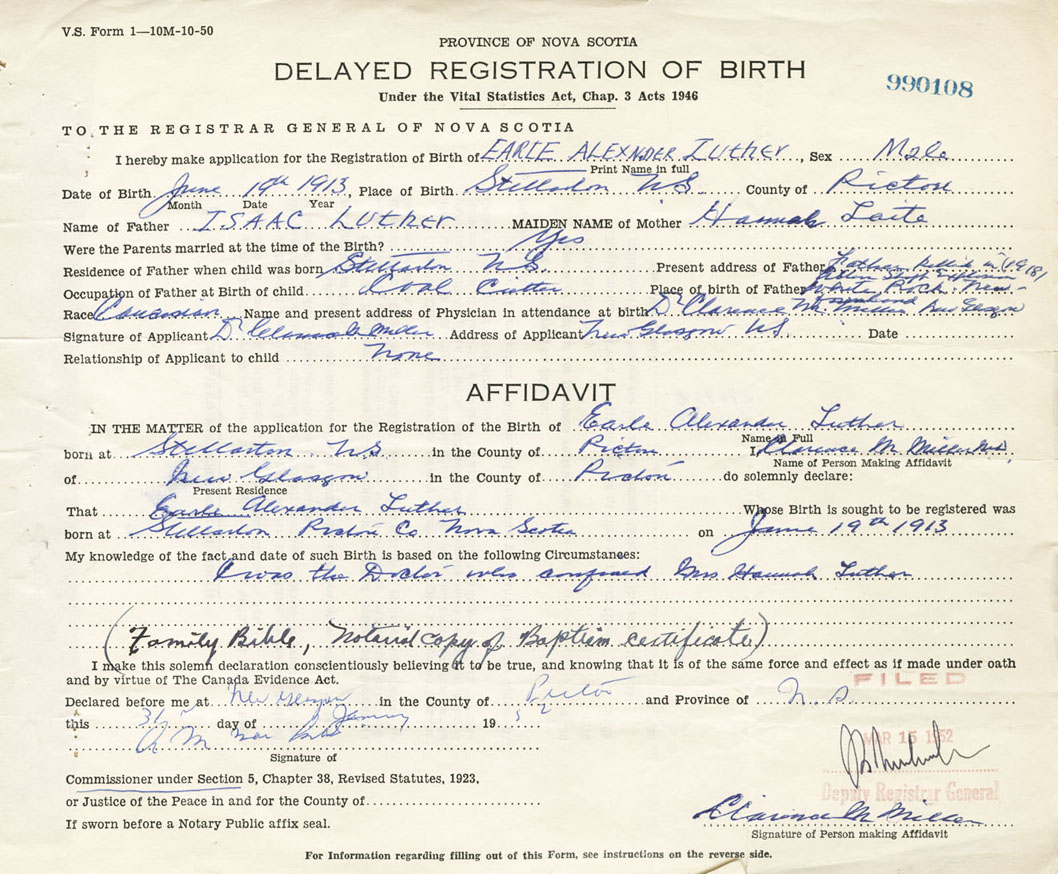 V.S. Form 1—10M-10-50
PROVINCE OF NOVA SCOTIA
DELAYED REGISTRATION OF BIRTH
990108
Under the Vital Statistics Act, Chap. 3 Acts 1946
TO THE REGISTRAR GENERAL OF NOVA SCOTIA
I hereby make application for the Registration of Birth of EARLE ALEXNDER LUTHER, Sex Male
Print Name in full
Date of Birth June 19th 1913, Place of Birth Stellarton NS County of Pictou
Month Date Year
Name of Father ISAAC LUTHER MAIDEN NAME of Mother Hannah Laite
Were the Parents married at the time of the Birth? Yes
Residence of Father when child was born Stellarton NS Present address of Father killed in (1918)
Explosion
Occupation of Father at Birth of child Coal Cutter Place of birth of Father White Rock New-
foundland
Race Caucasian Name and present address of Physician in attendance at birth Dr Clarence M. Miller New Glasgow
Signature of Applicant Dr Clarence M Miller Address of Applicant New Glasgow NS. Date
Relationship of Applicant to child None
AFFIDAVIT
IN THE MATTER of the application for the Registration of the Birth of Earle Alexander Luther
Name in Full
born at Stellarton NS in the County of Pictou I, Clarence M. Miller M.D.
Name of Person Making Affidavit
of New Glasgow in the County of Pictou do solemnly declare:
Present Residence
That Earle Alexander Luther Whose Birth is sought to be registered was
born at Stellarton Pictou Co Nova Scotia on June 19th 1913
My knowledge of the fact and date of such Birth is based on the following Circumstances:
I was the Doctor who confined Mrs Hannah Luther
(Family Bible, Notarial copy of Baptism certificate)
I make this solemn declaration conscientiously believing it to be true, and knowing that it is of the same force and effect as if made under oath
and by virtue of The Canada Evidence Act.
FILED
Declared before me at New Glasgow in the County of Pictou and Province of N.S.
this 31 day of January 1952
MAR 15 1952
Signature of
Commissioner under Section 5, Chapter 38, Revised Statutes, 1923,
or Justice of the Peace in and for the County of
Deputy Registrar General
Clarence M Miller
If sworn before a Notary Public affix seal.
Signature of Person making Affidavit
For Information regarding filling out of this Form, see instructions on the reverse side.